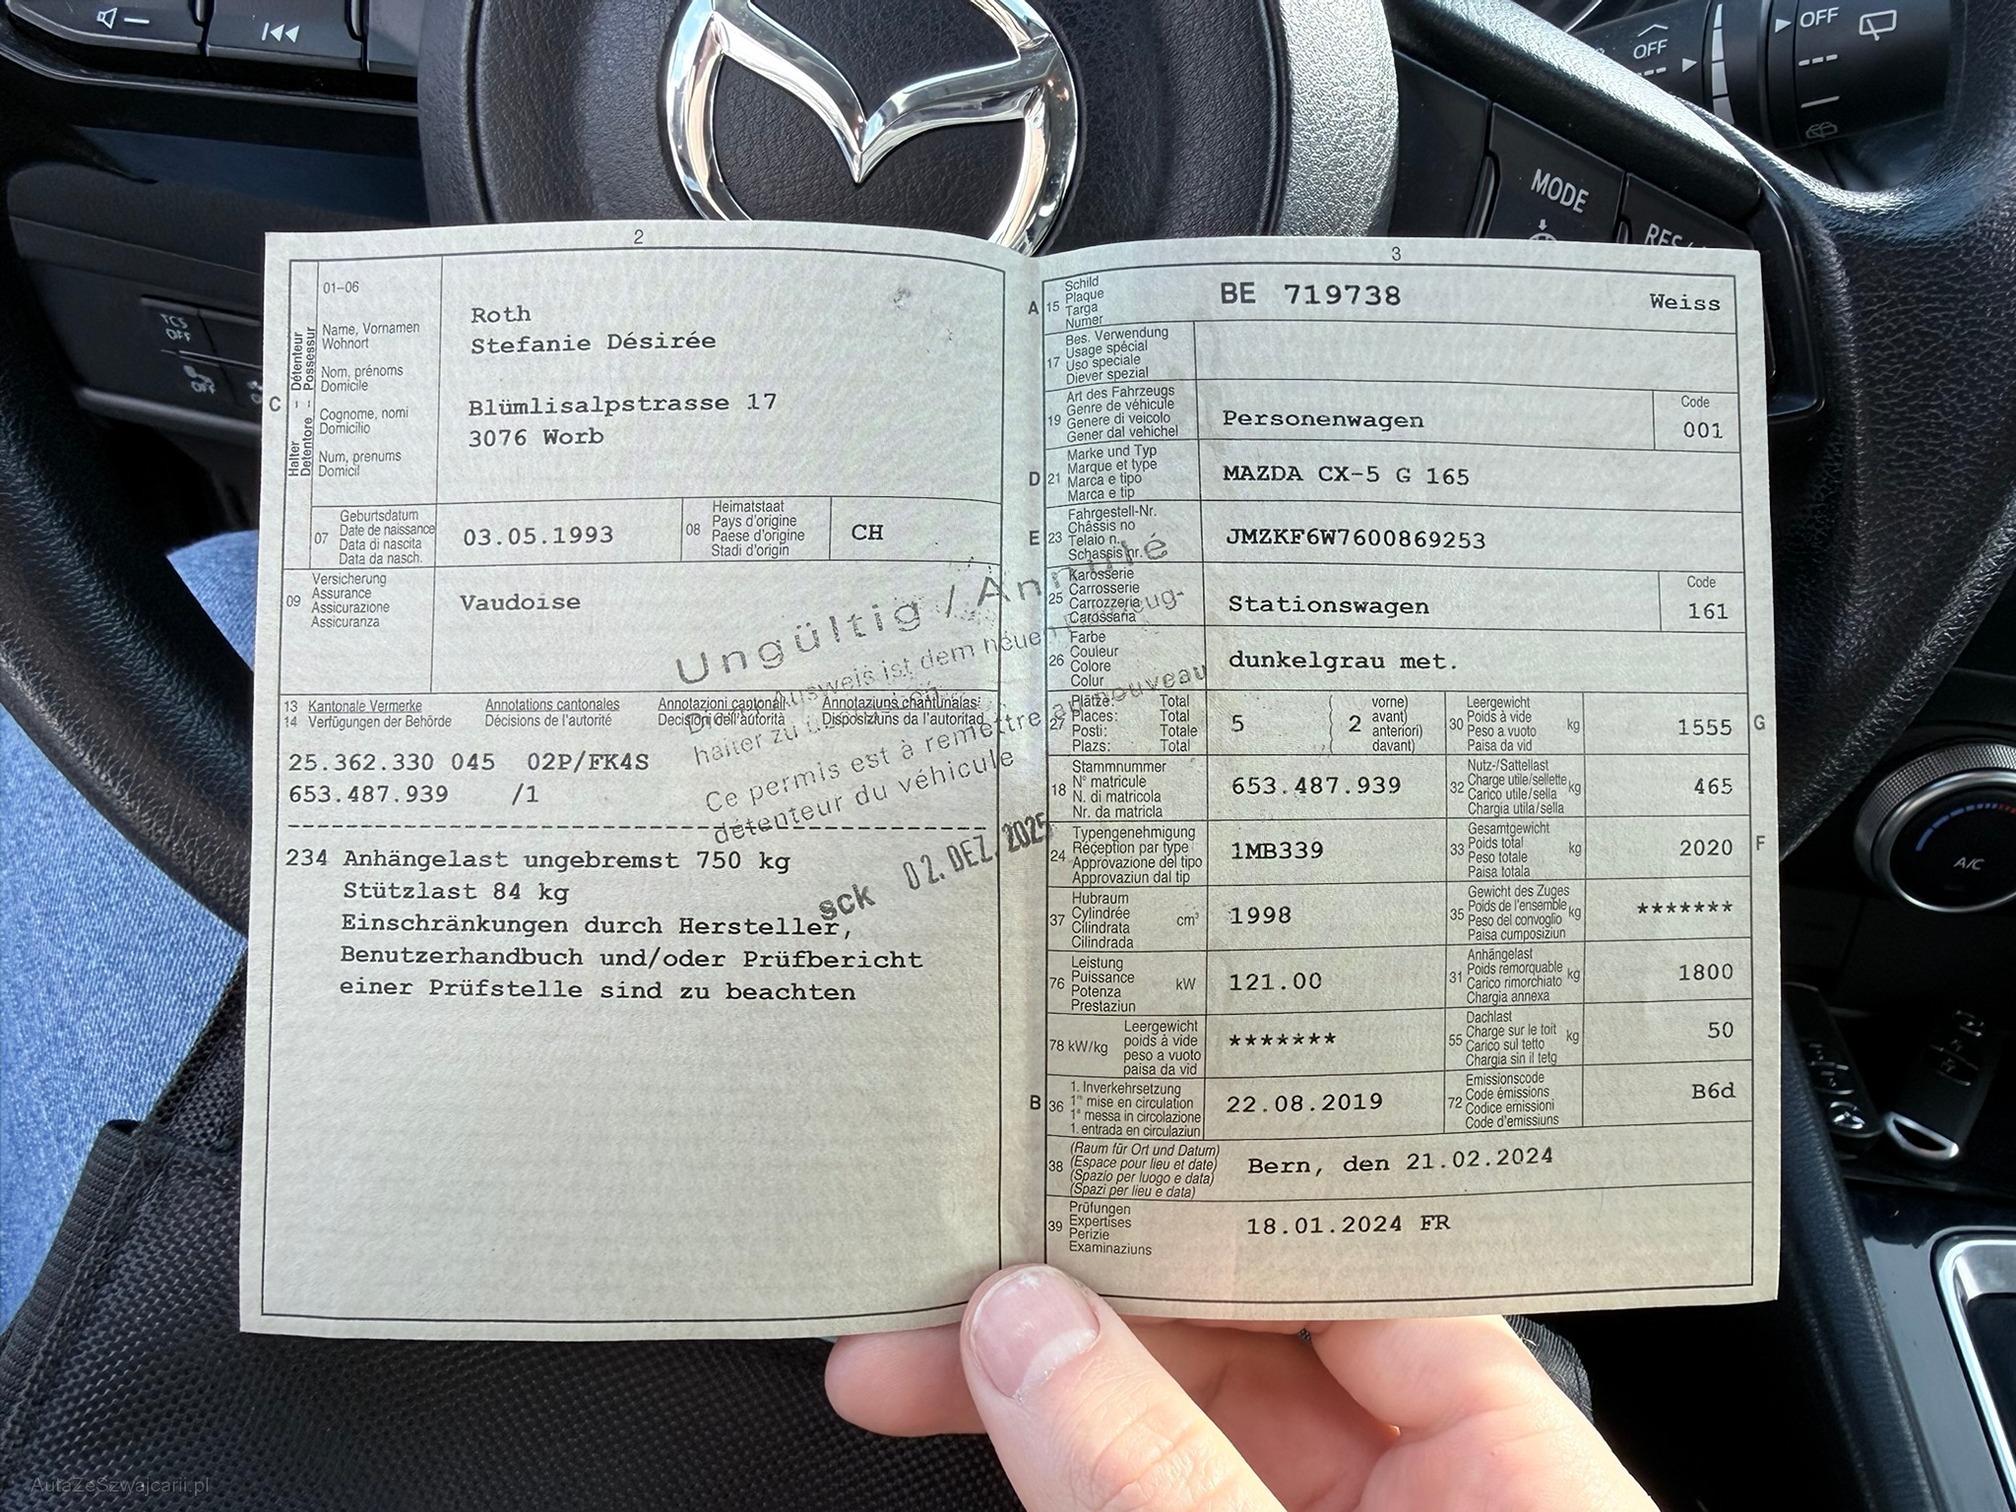 OFF
OFF
MODE
RES
TCS
OFF
OFF
A/C
2
01-06
Name, Vornamen
Wohnort
Nom, prénoms
Domicile
Cognome, nomi
Domicilio
Num, prenums
Domicil
C
Halter – Détenteur
Detentore – Possessur
Roth
Stefanie Désirée
Blümlisalpstrasse 17
3076 Worb
07 Geburtsdatum
Date de naissance
Data di nascita
Data da nasch.
03.05.1993
08 Heimatstaat
Pays d'origine
Paese d'origine
Stadi d'origin
CH
09 Versicherung
Assurance
Assicurazione
Assicuranza
Vaudoise
13 Kantonale Vermerke Annotations cantonales Annotazioni cantonali Annotaziuns chantunalas
14 Verfügungen der Behörde Décisions de l'autorité Decisioni dell'autorità Disposiziuns da l'autoritad
25.362.330 045 02P/FK4S
653.487.939 /1
234 Anhängelast ungebremst 750 kg
Stützlast 84 kg
Einschränkungen durch Hersteller,
Benutzerhandbuch und/oder Prüfbericht
einer Prüfstelle sind zu beachten
Ungültig / Annulé
Ausweis ist dem neuen
halter zu
Ce permis est à remettre au nouveau
détenteur du véhicule
sck 02. DEZ. 2025
3
A 15 Schild
Plaque
Targa
Numer
BE 719738 Weiss
17 Bes. Verwendung
Usage spécial
Uso speciale
Diever spezial
19 Art des Fahrzeugs
Genre de véhicule
Genere di veicolo
Gener dal vehichel
Personenwagen
Code
001
D 21 Marke und Typ
Marque et type
Marca e tipo
Marca e tip
MAZDA CX-5 G 165
E 23 Fahrgestell-Nr.
Châssis no
Telaio n.
Schassis nr.
JMZKF6W7600869253
25 Karosserie
Carrosserie
Carrozzeria
Carossaria
Stationswagen
Code
161
26 Farbe
Couleur
Colore
Colur
dunkelgrau met.
27 Plätze: Total
Places: Total
Posti: Totale
Plazs: Total
5 2
vorne)
avant)
anteriori)
davant)
30 Leergewicht
Poids à vide
Peso a vuoto
Paisa da vid
kg
1555 G
18 Stammnummer
N° matricule
N. di matricola
Nr. da matricla
653.487.939
32 Nutz-/Sattellast
Charge utile/sellette
Carico utile/sella
Chargia utila/sella
kg
465
24 Typengenehmigung
Réception par type
Approvazione del tipo
Approvaziun dal tip
1MB339
33 Gesamtgewicht
Poids total
Peso totale
Paisa totala
kg
2020 F
37 Hubraum
Cylindrée
Cilindrata
Cilindrada
cm³
1998
35 Gewicht des Zuges
Poids de l'ensemble
Peso del convoglio
Paisa cumposiziun
kg
*******
76 Leistung
Puissance
Potenza
Prestaziun
kW
121.00
31 Anhängelast
Poids remorquable
Carico rimorchiato
Chargia annexa
kg
1800
78 kW/kg Leergewicht
poids à vide
peso a vuoto
paisa da vid
*******
55 Dachlast
Charge sur le toit
Carico sul tetto
Chargia sin il tetg
kg
50
B 36 1. Inverkehrsetzung
1re mise en circulation
1a messa in circolazione
1. entrada en circulaziun
22.08.2019
72 Emissionscode
Code émissions
Codice emissioni
Code d'emissiuns
B6d
38 (Raum für Ort und Datum)
(Espace pour lieu et date)
(Spazio per luogo e data)
(Spazi per lieu e data)
Bern, den 21.02.2024
39 Prüfungen
Expertises
Perizie
Examinaziuns
18.01.2024 FR
AutaZeSzwajcarii.pl